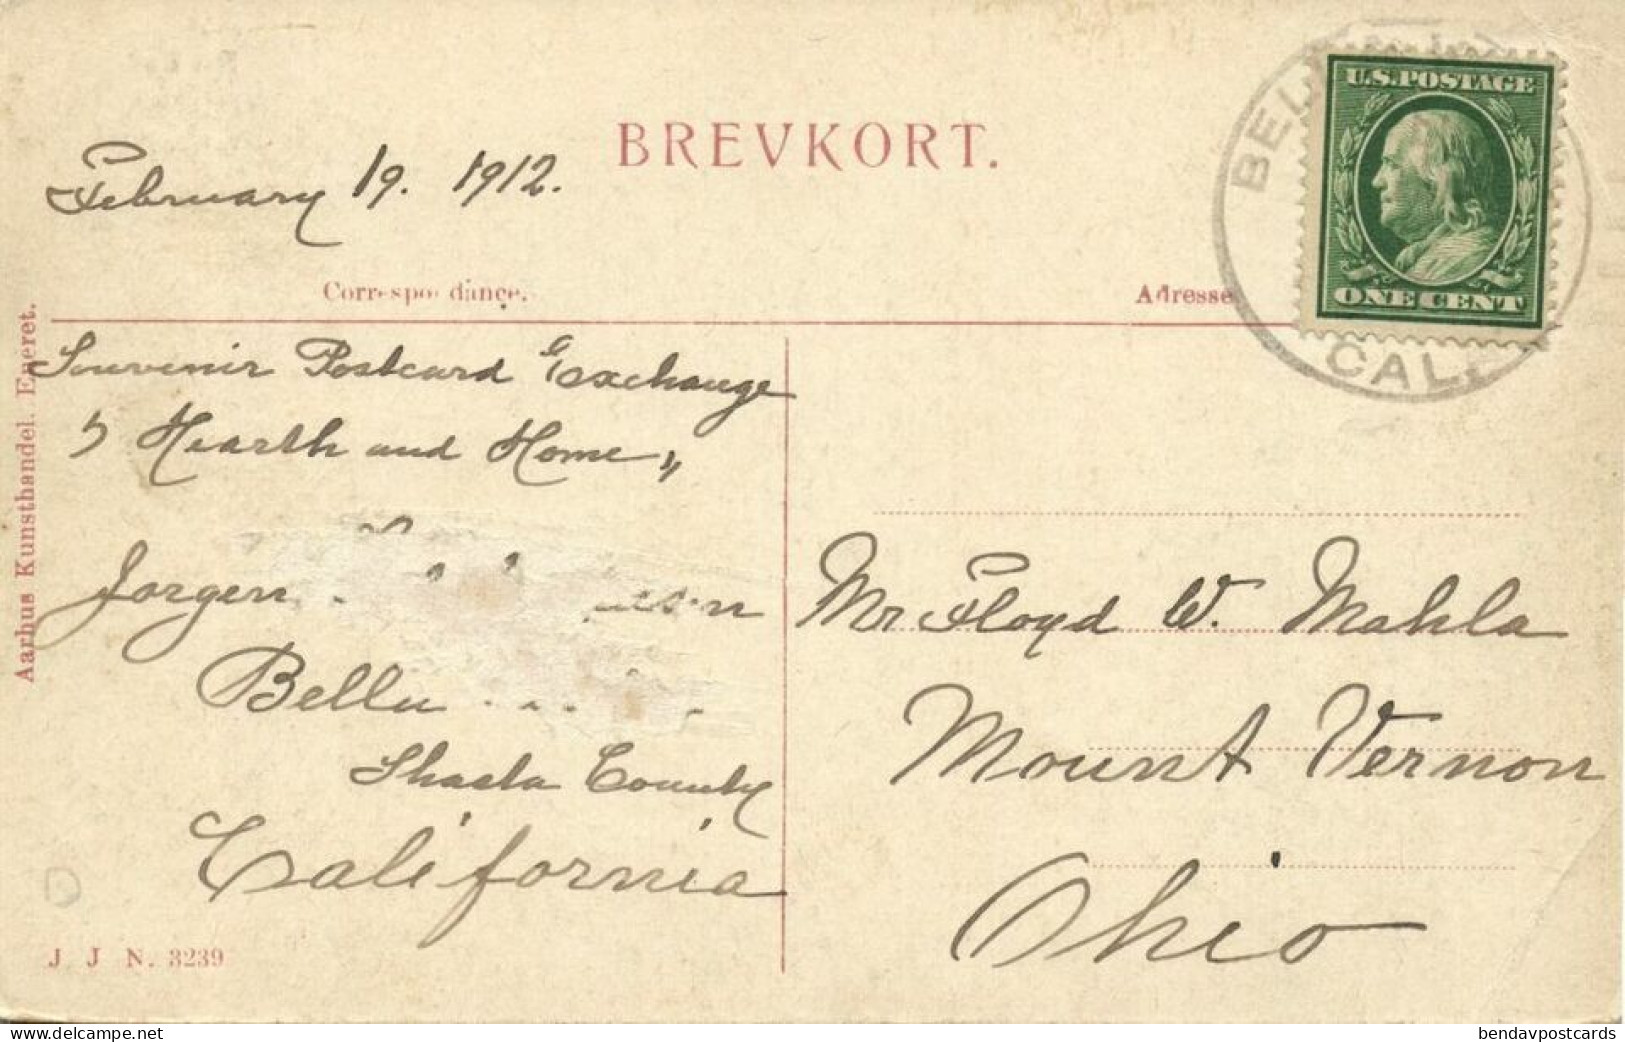 BREVKORT.
February 19. 1912.
Correspondance.
Adresse
U.S. POSTAGE
ONE CENT
BEL
CAL.
Souvenir Postcard Exchange
" Hearth and Home "
Jorgen
Bella
Shasta County
California
Mr Floyd W. Mahla
Mount Vernon
Ohio
Aarhus Kunsthandel. Eneret.
J J N. 3239
www.delcampe.net
bendavpostcards